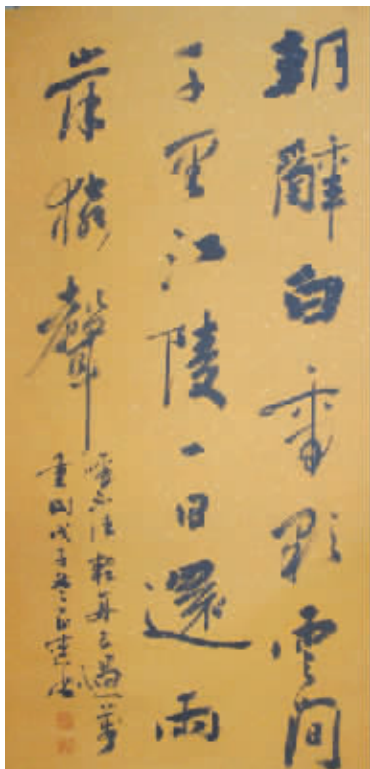 朝辭白帝彩雲間
千里江陵一日還兩
岸猿聲
啼不住輕舟已過萬
重山戊子冬建書